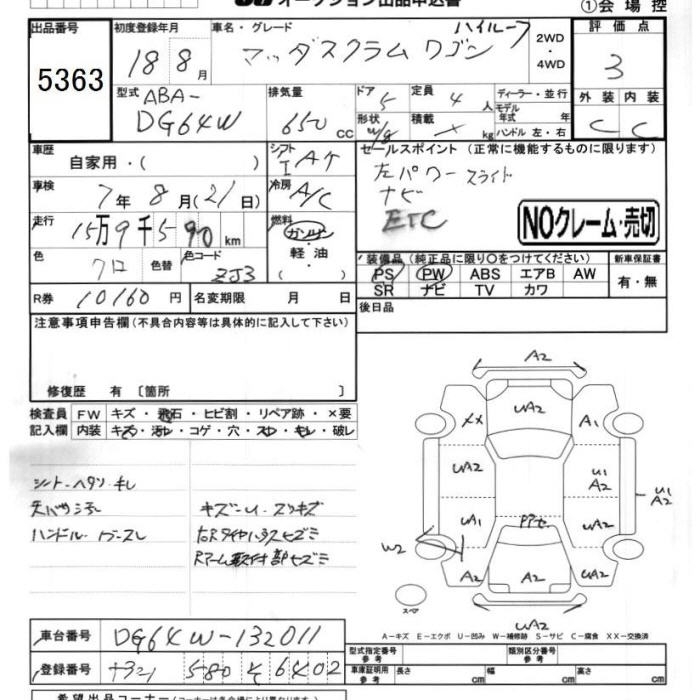 オークション出品申込書 ①会場控
出品番号 初度登録年月 車名・グレード ハイルーフ 2WD ・4WD 評価点
5363 18 8月 マツダスクラムワゴン 3
型式 ABA- DG64W 排気量 650 cc ドア 5 定員 4人 ディーラー・並行 外装 内装
形状 W/g 積載 kg モデル年式 年 ハンドル 左・右 C C
車歴 自家用・( ) シフト IAT セールスポイント(正常に機能するものに限ります)
車検 7年8月(21)日 冷房 A/C 左パワースライド
ナビ
走行 15万9千590km 燃料 ガソリン・軽油・( ) ETC NOクレーム・売切
色 クロ 色替 色コード ZJ3 装備品(純正品に限り○をつけてください) 新車保証書
PS PW ABS エアB AW 有・無
SR ナビ TV カワ
R券 10160円 名変期限 月 日 後日品
注意事項申告欄(不具合内容等は具体的に記入して下さい)
修復歴 有〔箇所 〕
検査員 FW キズ・飛石・ヒビ割・リペア跡・×要
記入欄 内装 キズ・汚れ・コゲ・穴・スレ・モレ・破レ
シート・ヘタリ・キレ
天バリ汚 キズ・U・スリキズ
ハンドル・スレ
A2
UA2
XX A1
UA2 U1 A2 U1 A2
UA1 UA2
W2
A2 A2 UA2
スペア
UA2
A−キズ E−エクボ U−凹み W−補修跡 S−サビ C−腐食 XX−交換済
車台番号 DG64W-132011 型式指定番号 参考 類別区分番号 参考
登録番号 580 そ 6402 車庫証明用参考 長さ cm 幅 cm 高さ cm
希望出品コーナー